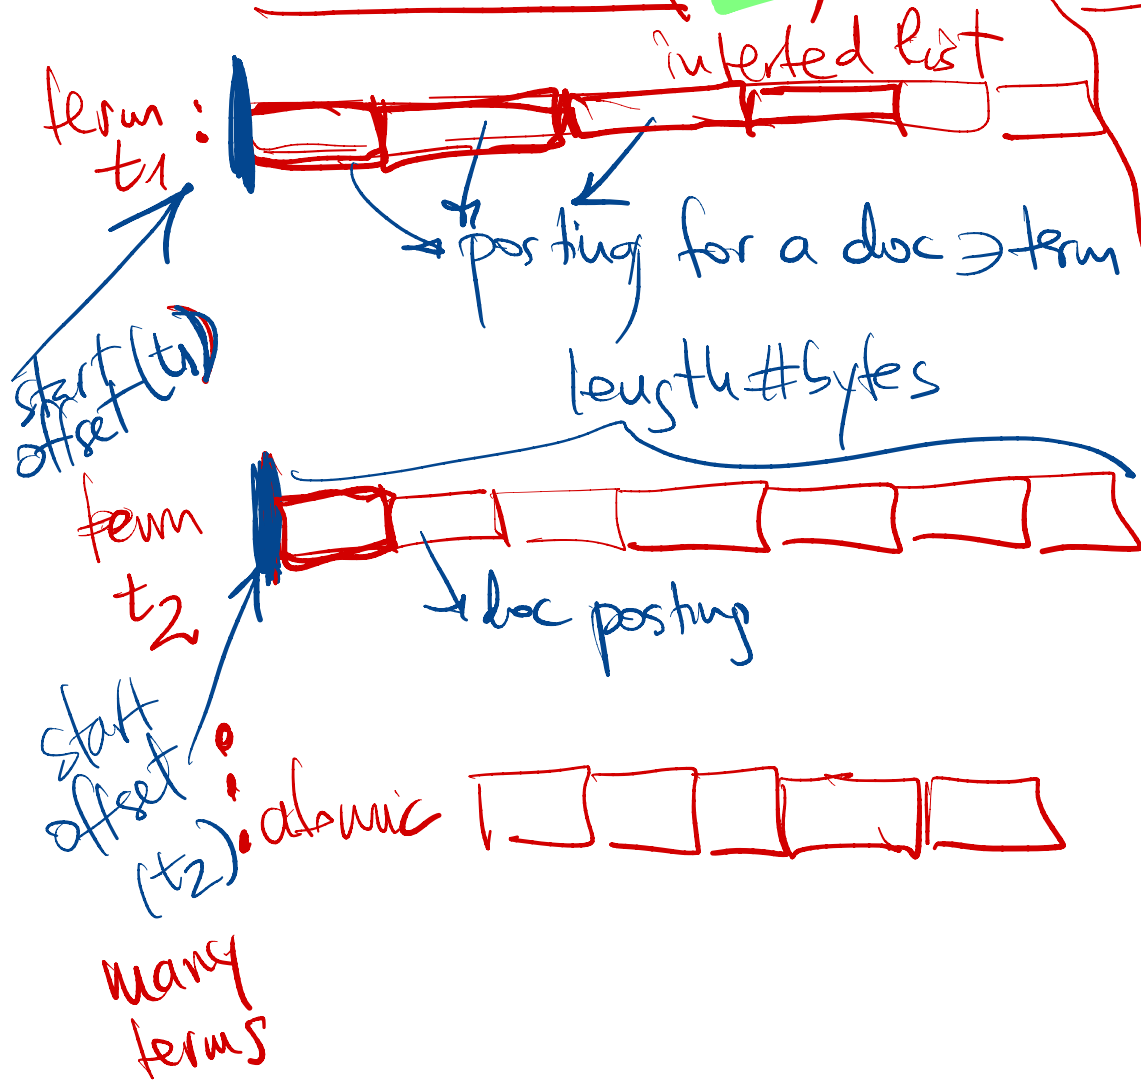 inverted list
term :
t1
posting for a doc ∋ term
start (t1)
offset
length #bytes
term
t2
doc posting
start
offset
(t2)
atomic
many
terms